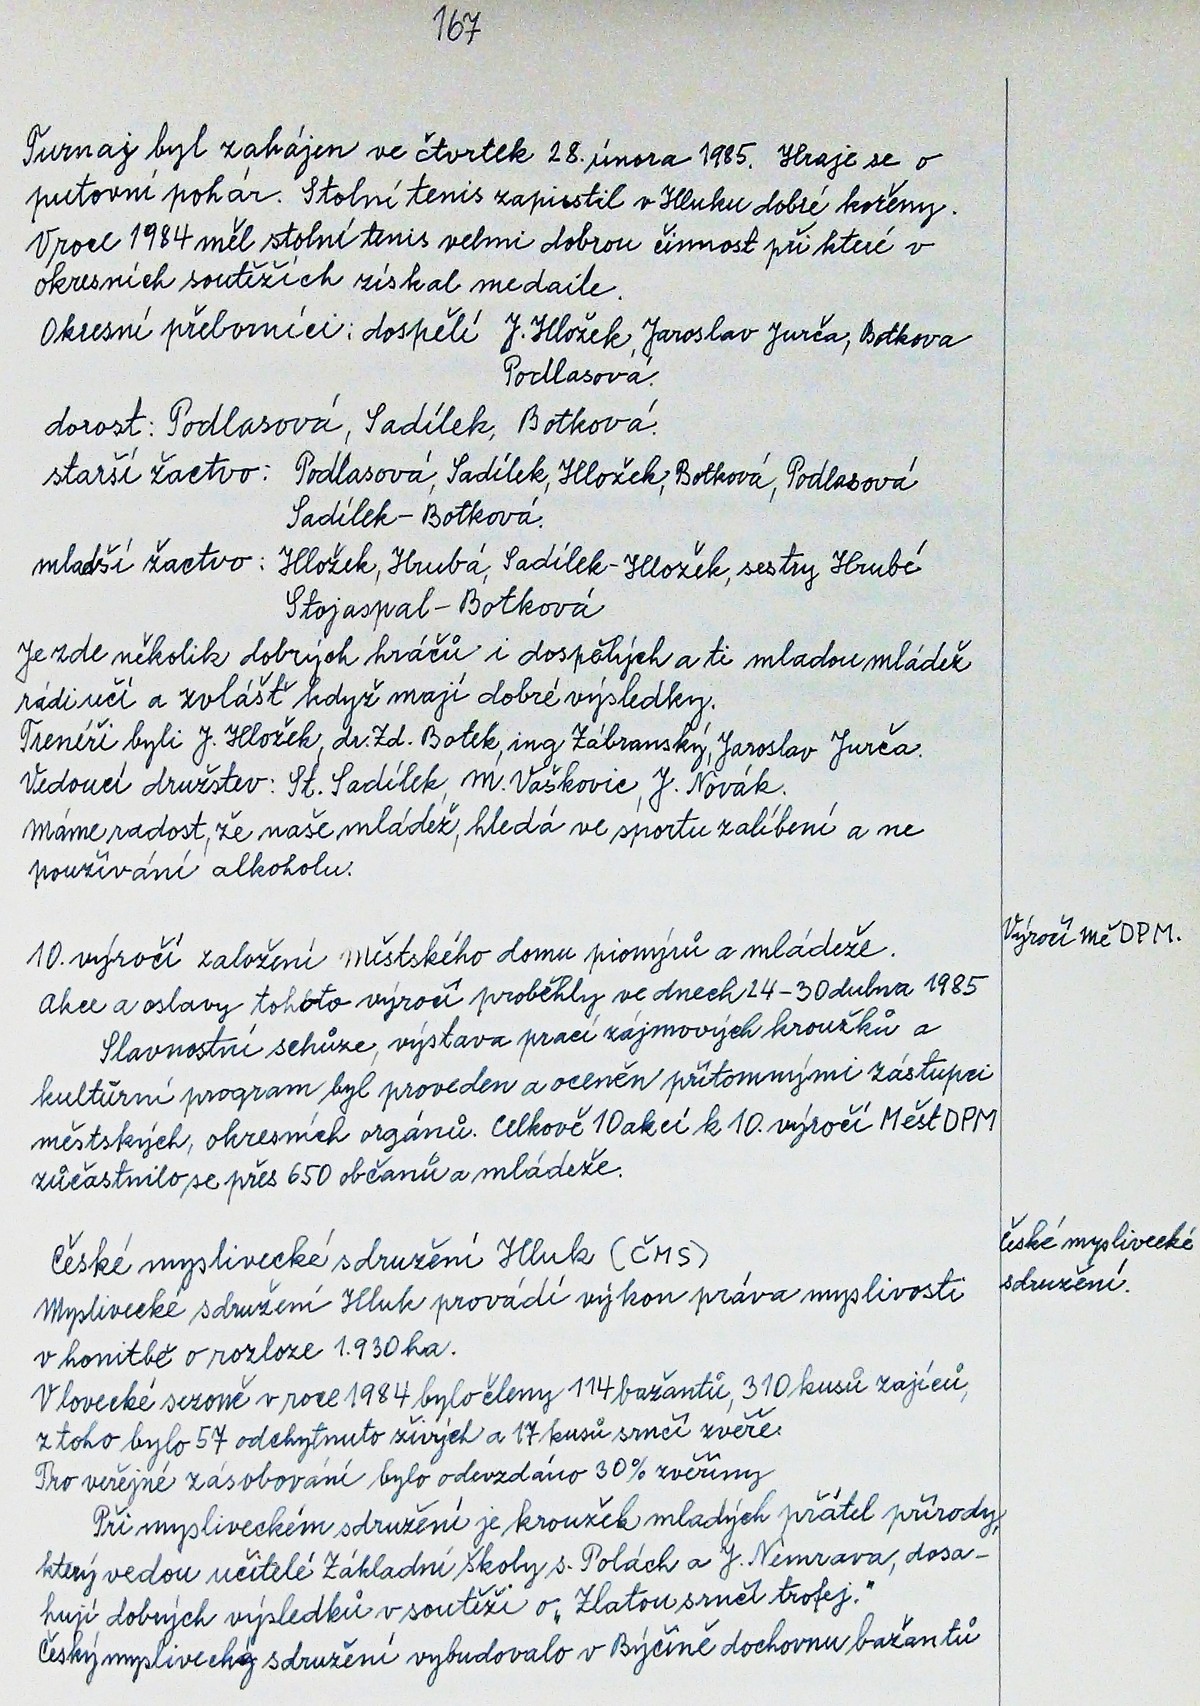 167
Turnaj byl zahájen ve čtvrtek 28. února 1985. Hraje se o
putovní pohár. Stolní tenis zapustil v Hluku dobré kořeny.
V roce 1984 měl stolní tenis velmi dobrou činnost při které v
okresních soutěžích získal medaile.
Okresní přeborníci: dospělí J. Hložek, Jaroslav Jurča, Botkova
Podlasová.
dorost: Podlasová, Sadílek, Botková.
starší žactvo: Podlasová, Sadílek, Hložek, Botková, Podlasová
Sadílek - Botková.
mladší žactvo: Hložek, Hrubá, Sadílek - Hložek, sestry Hrubé
Stojaspal - Botková
Je zde několik dobrých hráčů i dospělých a ti mladou mládež
rádi učí a zvlášť když mají dobré výsledky.
Trenéři byli J. Hložek, dr. Zd. Botek, ing Zábranský, Jaroslav Jurča.
Vedoucí družstev: St. Sadílek, M. Vaškovic, J. Novák.
Máme radost, že naše mládež, hledá ve sportu zalíbení a ne
používání alkoholu.
10. výročí založení Městského domu pionýrů a mládeže.
Výročí Mě DPM.
Akce a oslavy tohoto výročí proběhly ve dnech 24-30 dubna 1985
Slavnostní schůze, výstava prací zájmových kroužků a
kulturní program byl proveden a oceněn přítomnými zástupci
městských, okresních orgánů. Celkově 10 akcí k 10. výročí Měst DPM
zúčastnilo se přes 650 občanů a mládeže.
České myslivecké sdružení Hluk (ČMS)
České myslivecké
sdružení.
Myslivecké sdružení Hluk provádí výkon práva myslivosti
v honitbě o rozloze 1.930 ha.
V lovecké sezoně v roce 1984 bylo členy 114 bažantů, 310 kusů zajíců,
z toho bylo 57 odchytnuto živých a 17 kusů srnčí zvěře.
Pro veřejné zásobování bylo odevzdáno 30% zvěřiny
Při mysliveckém sdružení je kroužek mladých přátel přírody,
který vedou učitelé Základní školy s. Polách a J. Nemrava, dosa-
hují dobrých výsledků v soutěži o „Zlatou srnčí trofej."
Český myslivecký sdružení vybudovalo v Býčině dochovnu bažantů